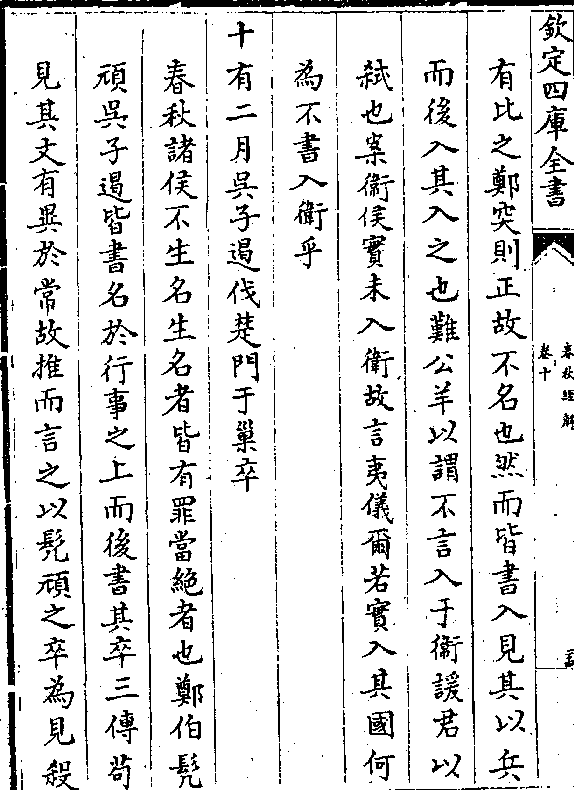 欽定四庫全書
春秋經解
卷十
有比之鄭突則正故不名也然而皆書入見其以兵
而後入其入之也難公羊以謂不言入于衛諼君以
弑也案衛侯實未入衛故言夷儀爾若實入其國何
為不書入衛乎
十有二月吳子遏伐楚門于巢卒
春秋諸侯不生名生名者皆有罪當絕者也鄭伯髠
頑吳子遏皆書名於行事之上而後書其卒三傳茍
見其文有異於常故推而言之以髠頑之卒為見殺